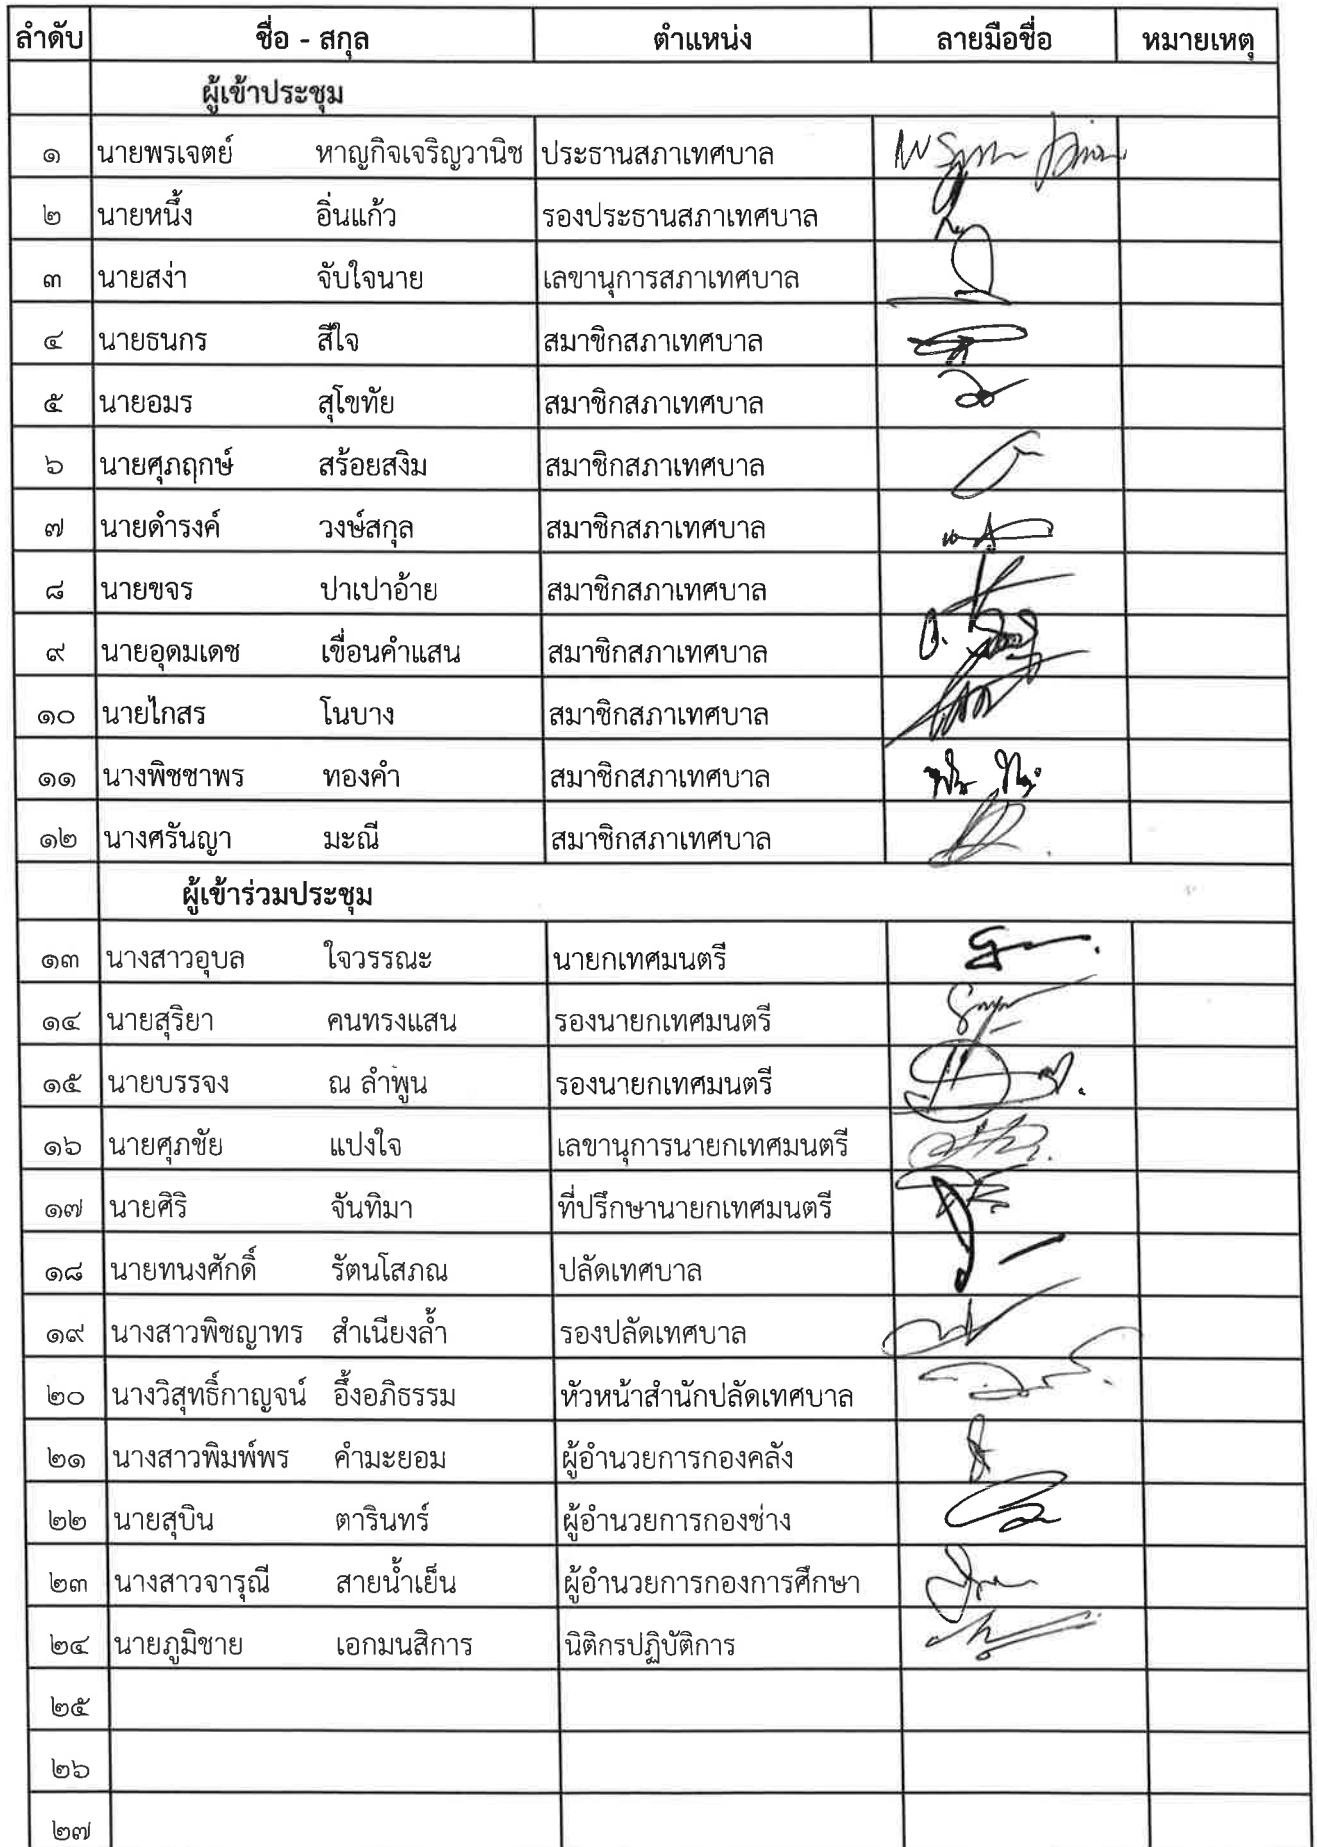 ลำดับ ชื่อ - สกุล ตำแหน่ง ลายมือชื่อ หมายเหตุ
ผู้เข้าประชุม
๑ นายพรเจตย์ หาญกิจเจริญวานิช ประธานสภาเทศบาล
๒ นายหนึ้ง อิ่นแก้ว รองประธานสภาเทศบาล
๓ นายสง่า จับใจนาย เลขานุการสภาเทศบาล
๔ นายธนกร สีใจ สมาชิกสภาเทศบาล
๕ นายอมร สุโขทัย สมาชิกสภาเทศบาล
๖ นายศุภฤกษ์ สร้อยสงิม สมาชิกสภาเทศบาล
๗ นายดำรงค์ วงษ์สกุล สมาชิกสภาเทศบาล
๘ นายขจร ปาเปาอ้าย สมาชิกสภาเทศบาล
๙ นายอุดมเดช เขื่อนคำแสน สมาชิกสภาเทศบาล
๑๐ นายไกสร โนบาง สมาชิกสภาเทศบาล
๑๑ นางพิชชาพร ทองคำ สมาชิกสภาเทศบาล
๑๒ นางศรันญา มะณี สมาชิกสภาเทศบาล
ผู้เข้าร่วมประชุม
๑๓ นางสาวอุบล ใจวรรณะ นายกเทศมนตรี
๑๔ นายสุริยา คนทรงแสน รองนายกเทศมนตรี
๑๕ นายบรรจง ณ ลำพูน รองนายกเทศมนตรี
๑๖ นายศุภชัย แปงใจ เลขานุการนายกเทศมนตรี
๑๗ นายศิริ จันทิมา ที่ปรึกษานายกเทศมนตรี
๑๘ นายทนงศักดิ์ รัตนโสภณ ปลัดเทศบาล
๑๙ นางสาวพิชญาทร สำเนียงล้ำ รองปลัดเทศบาล
๒๐ นางวิสุทธิ์กาญจน์ อึ้งอภิธรรม หัวหน้าสำนักปลัดเทศบาล
๒๑ นางสาวพิมพ์พร คำมะยอม ผู้อำนวยการกองคลัง
๒๒ นายสุบิน ตารินทร์ ผู้อำนวยการกองช่าง
๒๓ นางสาวจารุณี สายน้ำเย็น ผู้อำนวยการกองการศึกษา
๒๔ นายภูมิชาย เอกมนสิการ นิติกรปฏิบัติการ
๒๕
๒๖
๒๗